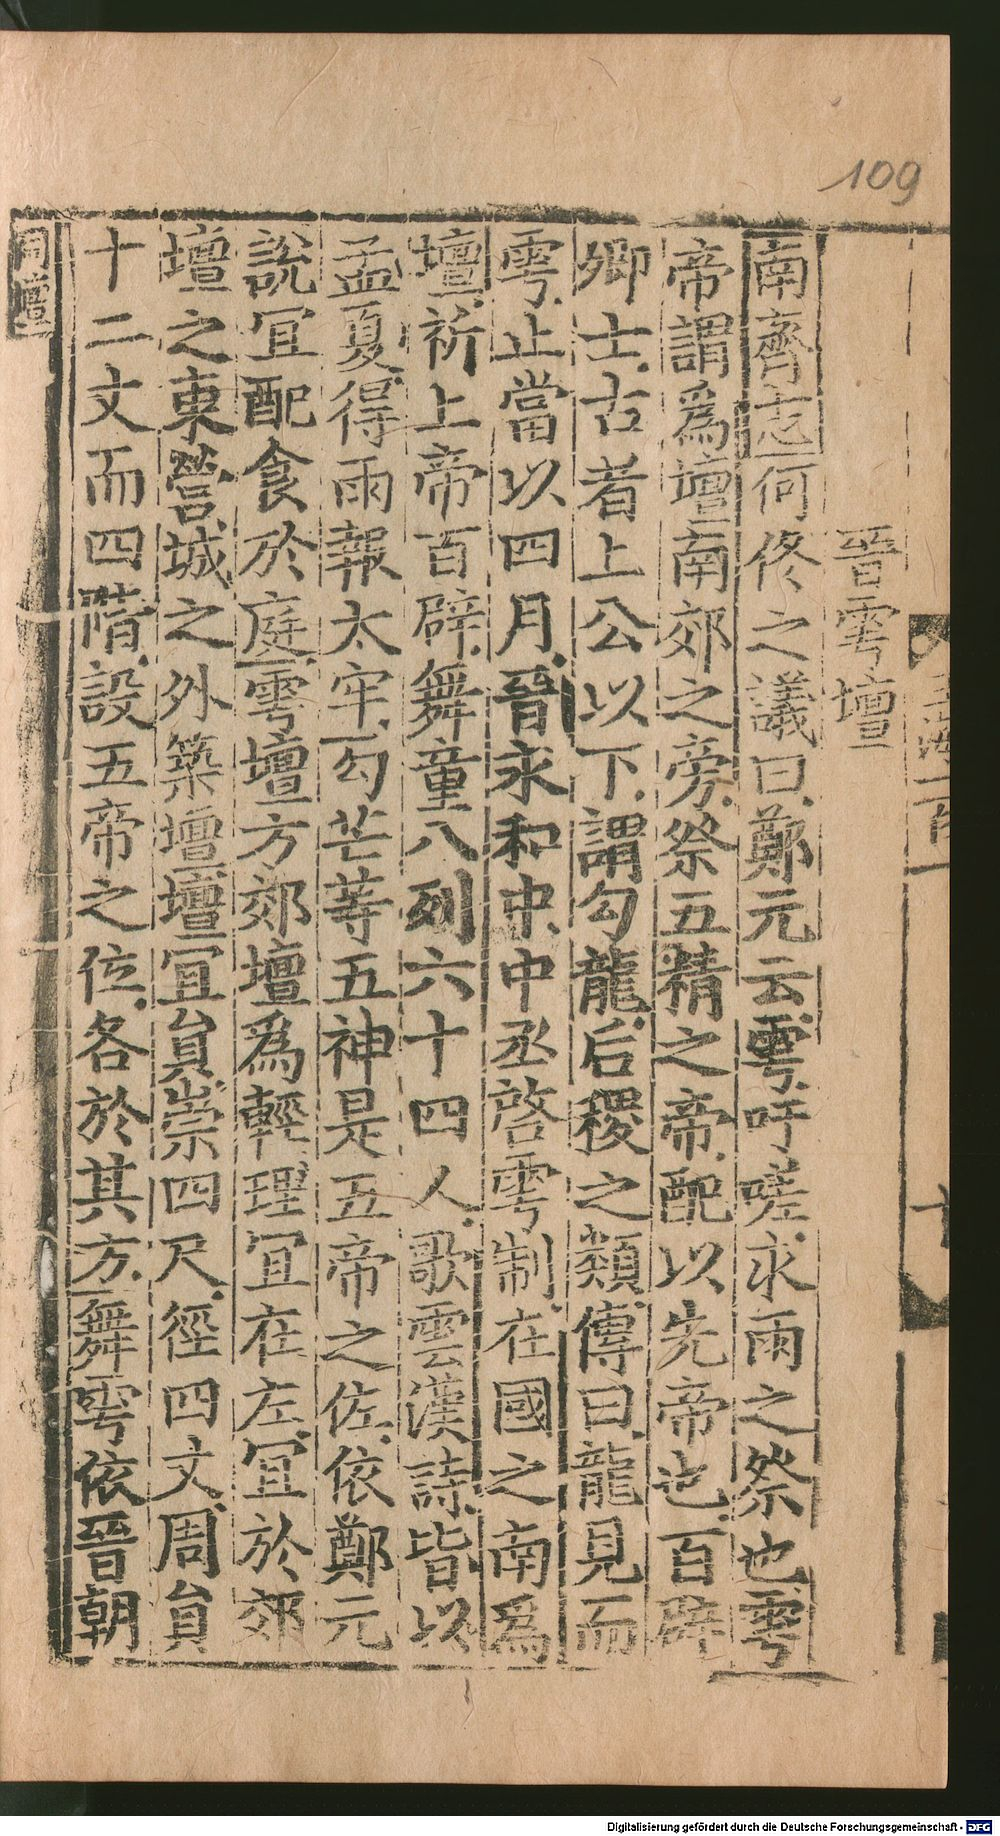 109
晉雩壇
南齊志何佟之議曰鄭元云雩吁嗟求雨之祭也雩
帝謂爲壇南郊之旁祭五精之帝配以先帝也百辟
卿士古者上公以下謂勾龍后稷之類傳曰龍見而
雩止當以四月晉永和中中丞啓雩制在國之南爲
壇祈上帝百辟舞童八列六十四人歌雲漢詩皆以
孟夏得雨報太牢勾芒等五神是五帝之佐依鄭元
說宜配食於庭雩壇方郊壇爲輕理宜在左宜於郊
壇之東營城之外築壇壇宜員崇四尺徑四丈周員
十二丈而四階設五帝之位各於其方舞雩依晉朝
祠壇
Digitalisierung gefördert durch die Deutsche Forschungsgemeinschaft - DFG